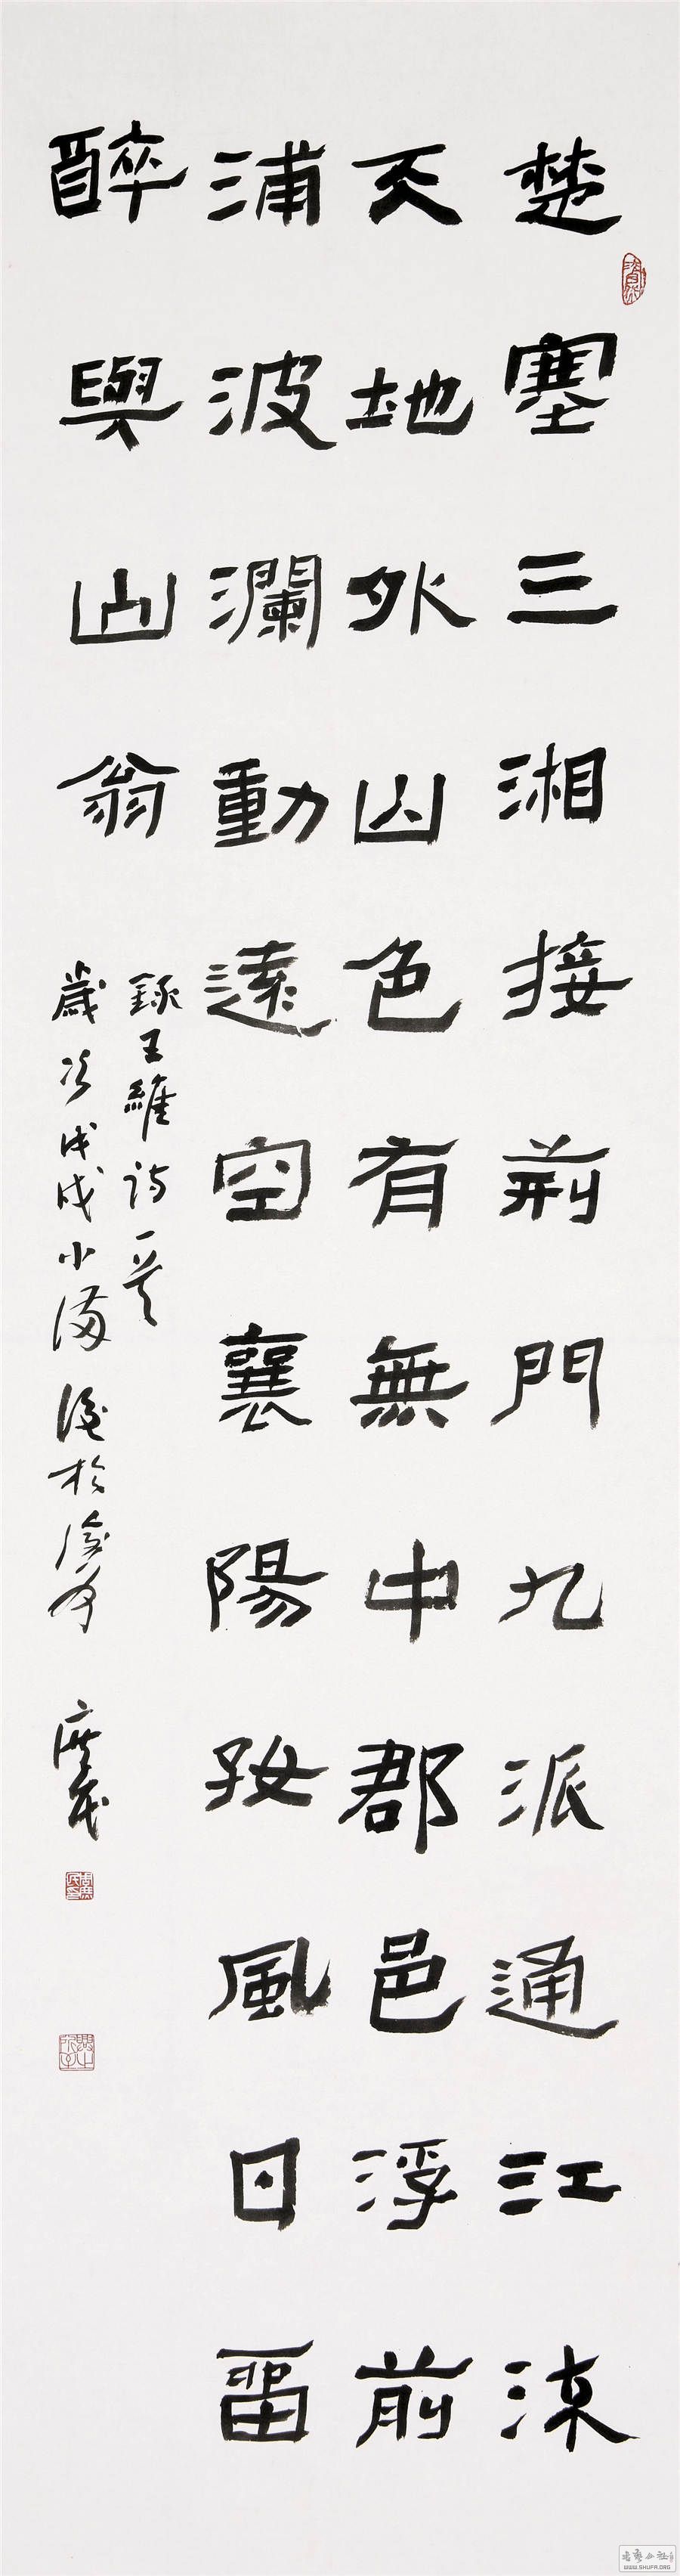 楚塞三湘接荊門九派通江流
天地外山色有無中郡邑浮前
浦波瀾動遠空襄陽好風日畱
醉與山翁
錄王維詩一首
歲次戊戌小滿後於
書藝公社
WWW.SHUFA.ORG